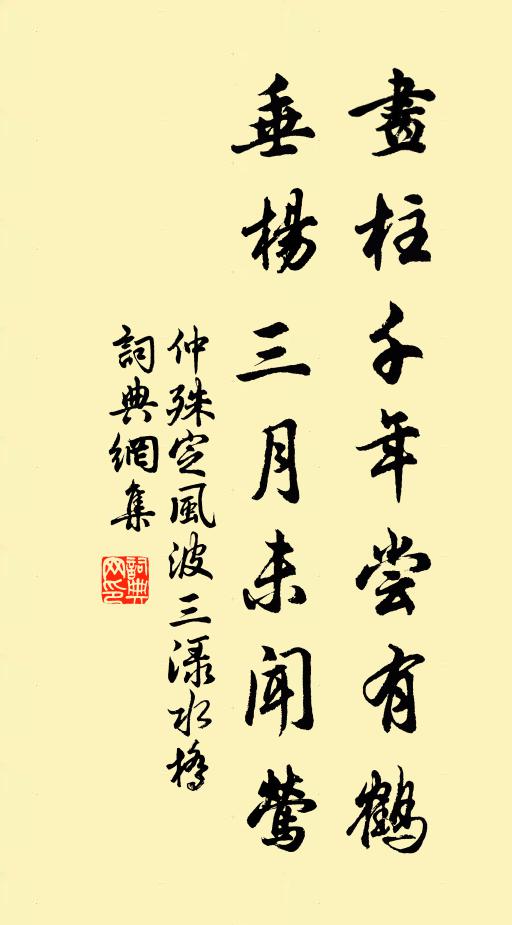 畫柱千年尝有鶴
垂楊三月未闻鶯
仲殊定風波三渌水橋
詞典網集
詞典網印